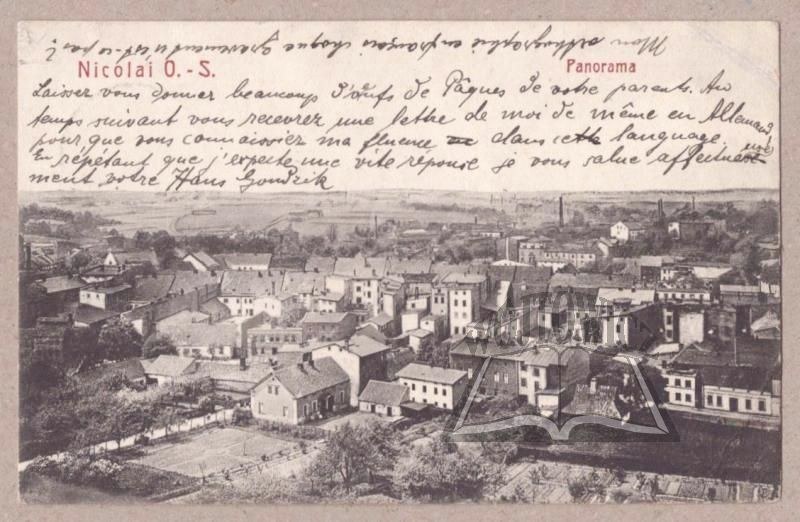 Mon orthographie en français choque gravement n'est-ce pas?
Nicolai O.-S.
Panorama
Laissez vous donner beaucoup d'œufs de Pâques de votre parents. Au
temps suivant vous recevrez une lettre de moi de même en Allemand
pour que vous connaissiez ma fluence dans cette language.
En répétant que j'expecte une vite réponse je vous salue affectueuse
ment votre Hans Gondzik